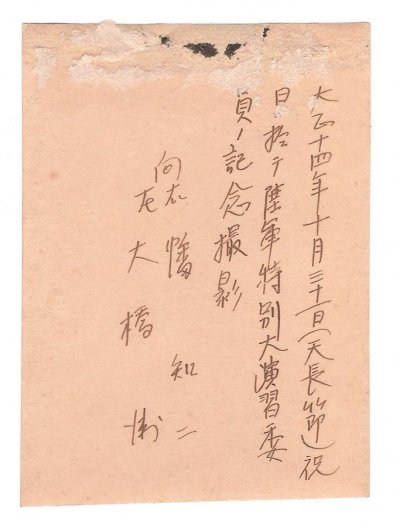 大正十四年十月三十一日(天長節)祝
日ニ於テ陸軍特別大演習委
員ノ記念撮影
向右 幡 知二
左 大橋